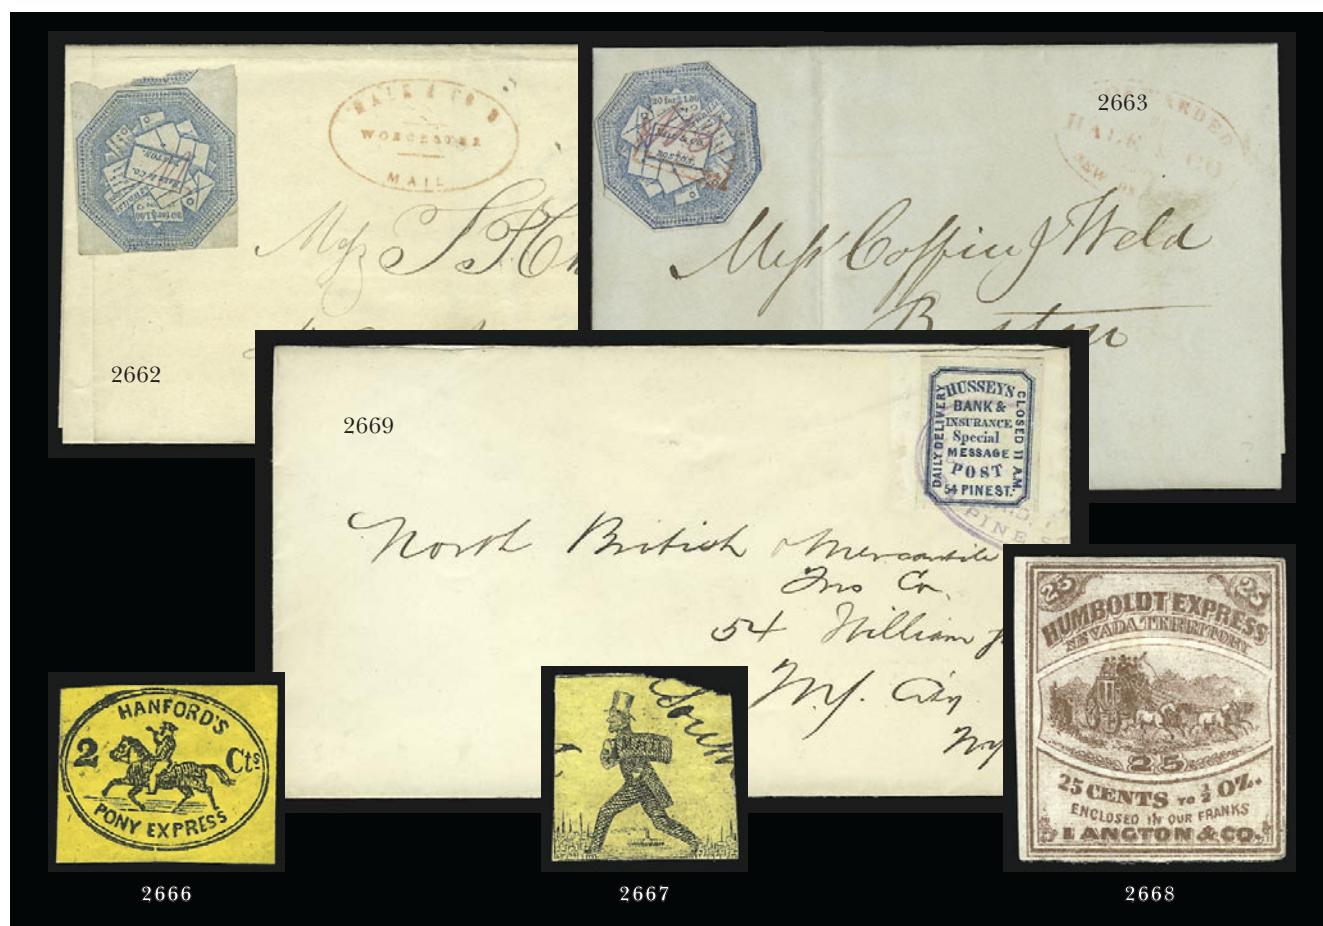 HALE & CO'S
WORCESTER
MAIL
20 for $1.00
HALE & CO.
BOSTON
Mess
2662
20 for $1.00
HALE & CO.
BOSTON
FORWARDED
HALE & CO
NEW
2663
Mess Coffin & Weld
Boston
2669
HUSSEYS
BANK &
INSURANCE
Special
MESSAGE
POST
54 PINE ST.
DAILY DELIVERY
CLOSED 11 A.M.
PINE S
North British & Mercantile
Ins Co.
54 William
N.Y. City
N.Y.
HANFORD'S
2 Cts.
PONY EXPRESS
2666
South
2667
25 25
HUMBOLDT EXPRESS
NEVADA TERRITORY
25
25 CENTS TO ½ OZ.
ENCLOSED IN OUR FRANKS
LANGTON & CO.
2668